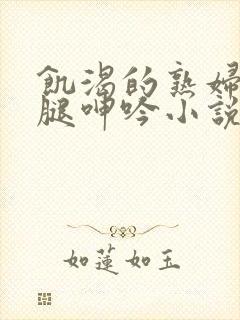 飢渴的熟婦
腿呻吟小說
如蓮如玉